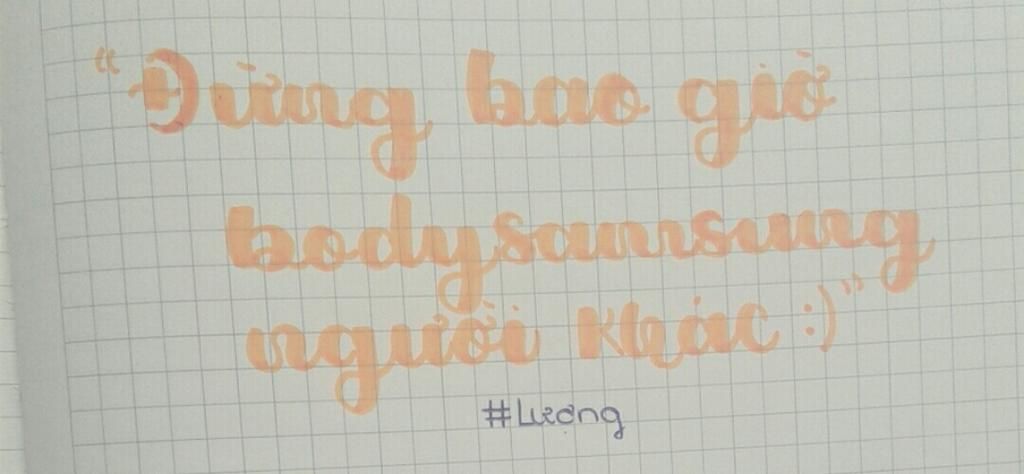 "Đừng bao giờ
bodysamsung
người khác :)"
#Lương